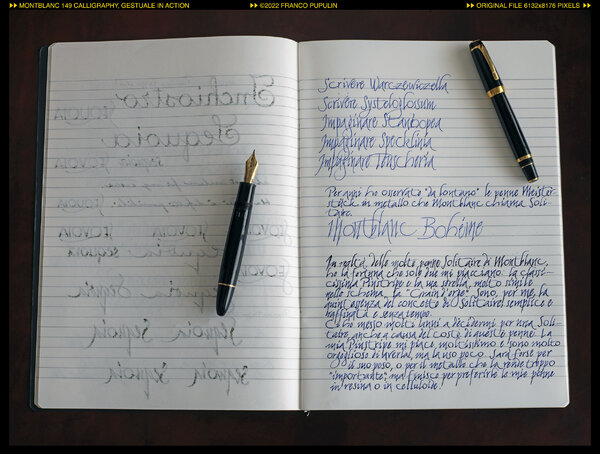 MONTBLANC 149 CALLIGRAPHY, GESTUALE IN ACTION
©2022 FRANCO PUPULIN
ORIGINAL FILE 6132x8176 PIXELS
Inchiostro
Sequoia
Sequoia Sequoia
Sequoia Sequoia
Scrivere Warczewiczella
Scrivere Systeloglossum
Impaginare Stanhopea
Impaginare Specklinia
Impaginare Teuscheria
Per anni ho osservato "da lontano" le penne Meister-
stück in metallo che Montblanc chiama Soli-
taire.
Montblanc Bohème
In realtà, delle molte penne Solitaire di Montblanc,
ho la fortuna che solo due mi piacciano. La classi-
cissima Pinstripe e la sua sorella, molto simile
nello schema, la "Grain d'orge". Sono, per me, la
quintessenza del concetto di Solitaire, semplice e
raffinata e senza tempo.
Ci ho messo molti anni a decidermi per una Soli-
taire, anche a causa del costo di queste penne. La
mia Pinstripe mi piace moltissimo e sono molto
orgoglioso di averla, ma la uso poco. Sarà forse per
il suo peso, o per il metallo che la rende troppo
"importante", ma finisco per preferirle le mie penne
in resina o in celluloide.